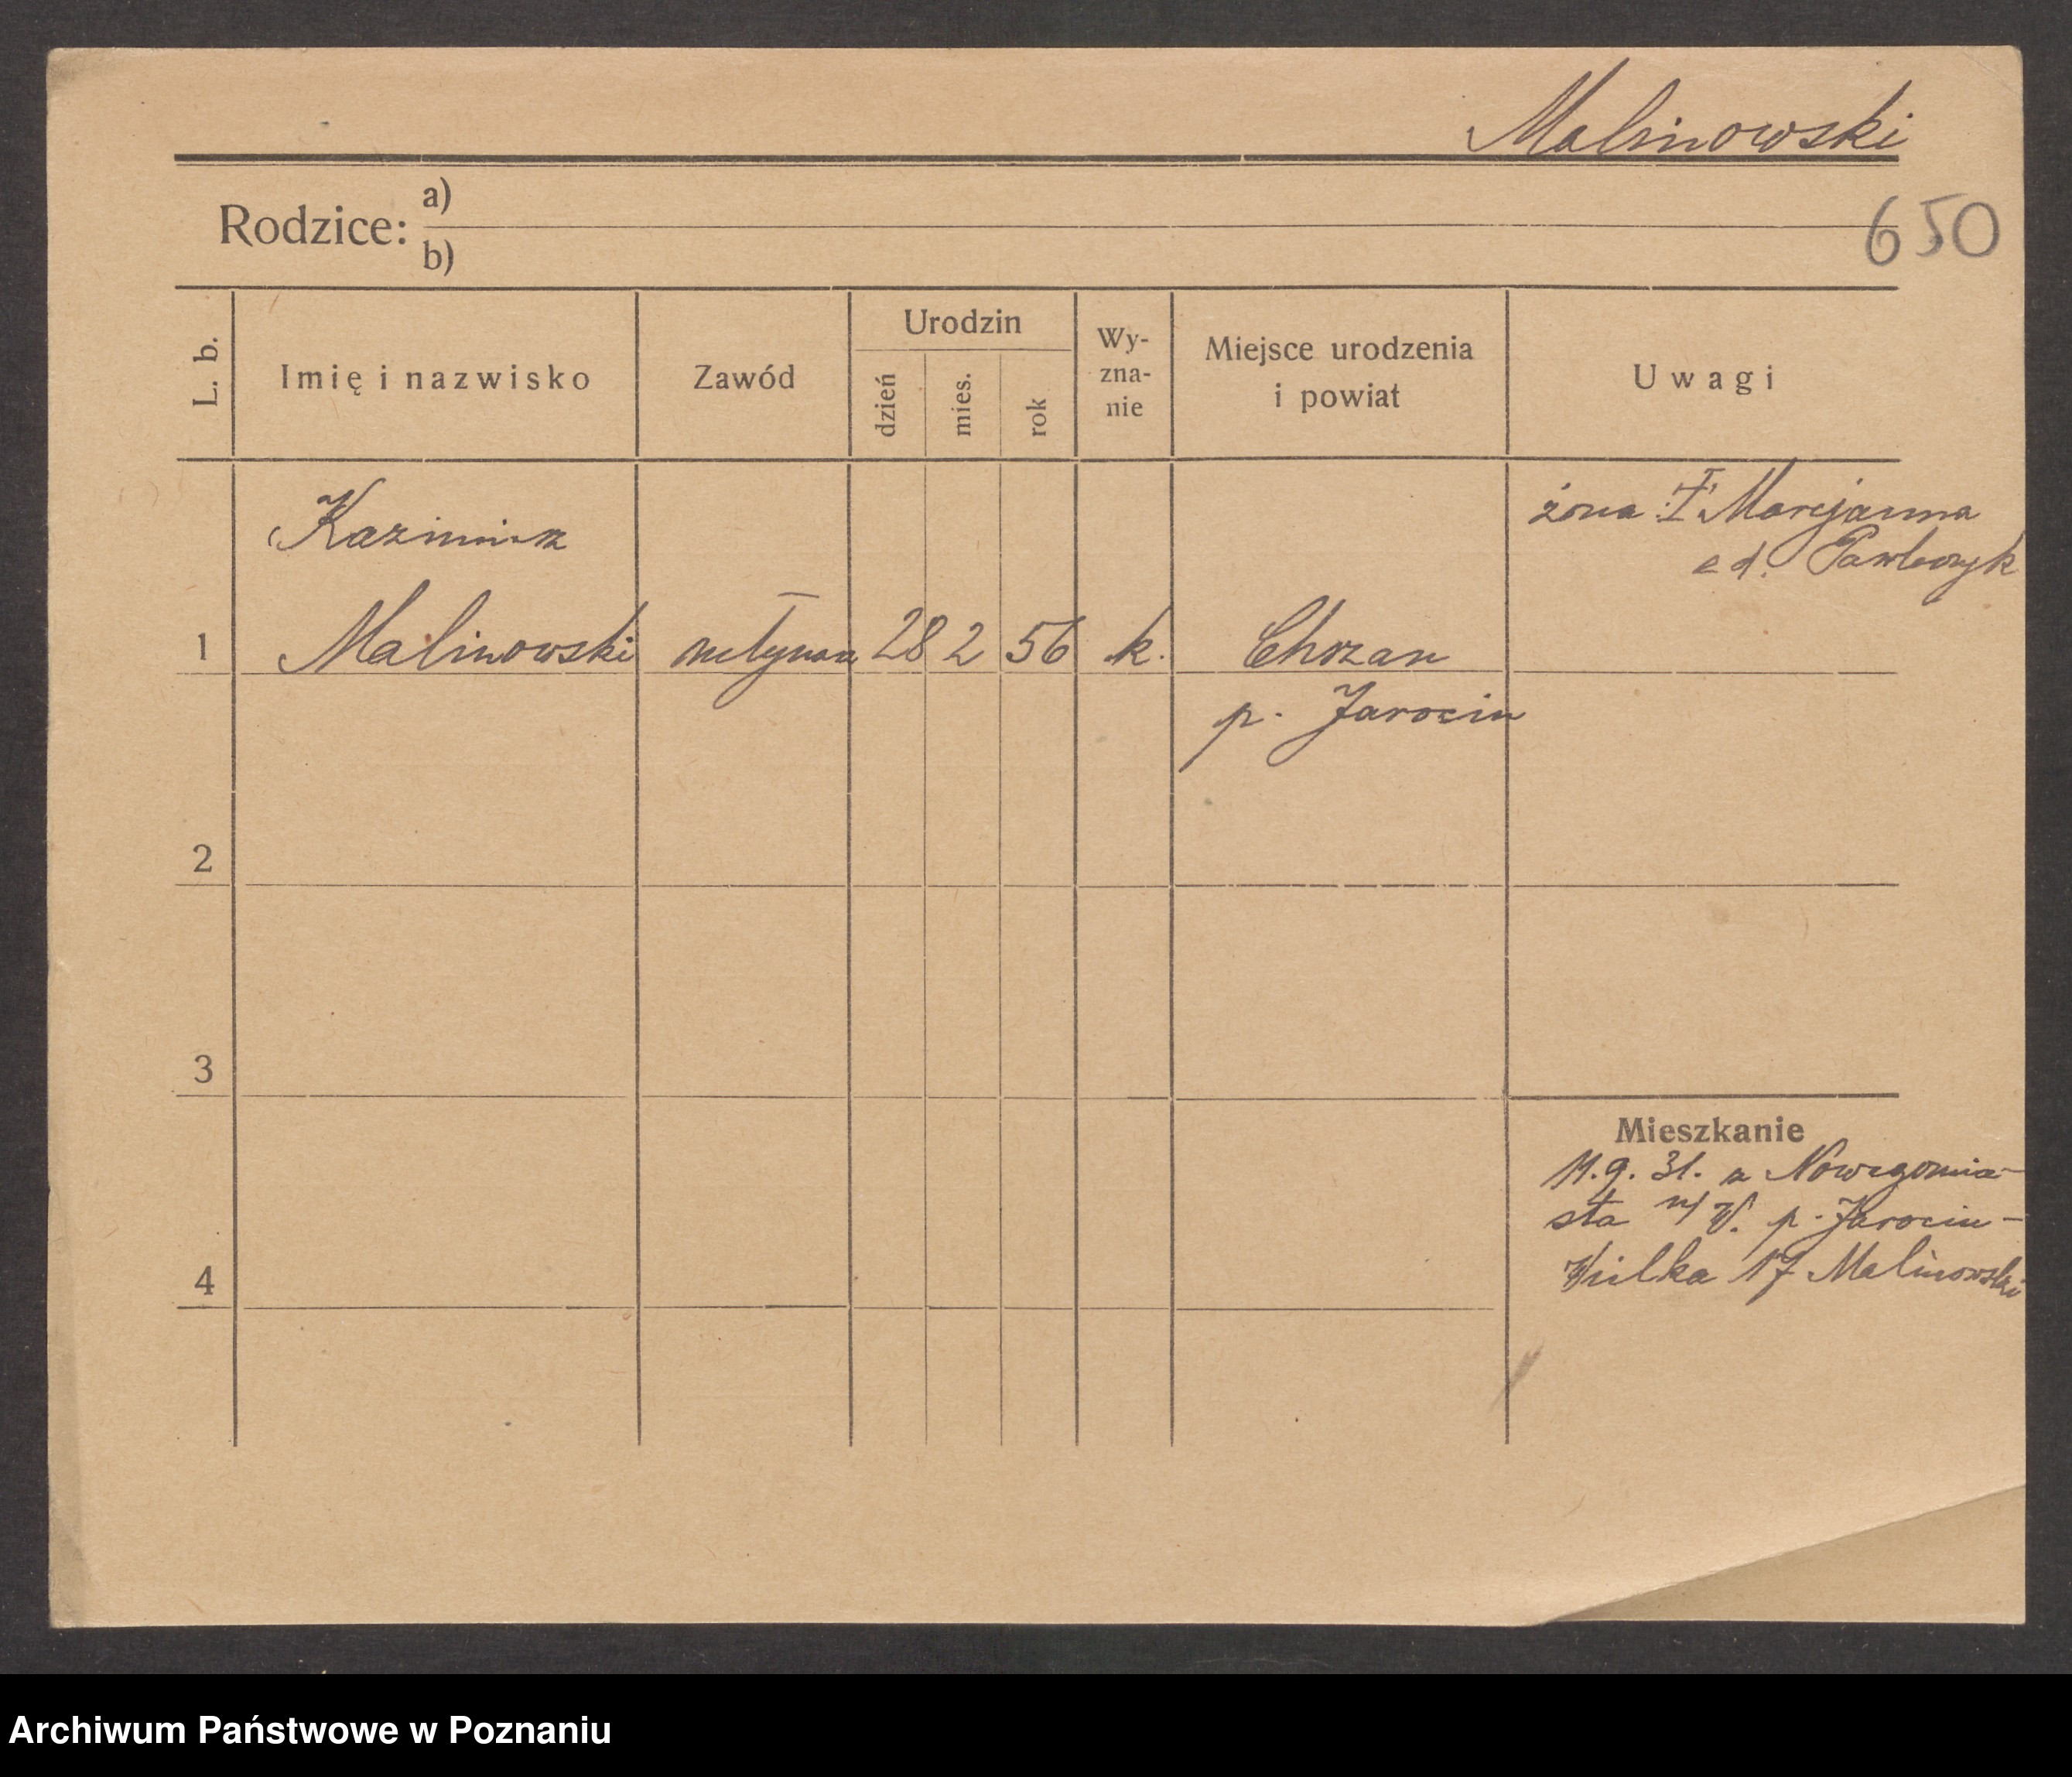 Malinowski
650
Rodzice: a)
b)
L. b.
Imię i nazwisko
Zawód
Urodzin
dzień
mies.
rok
Wy-
zna-
nie
Miejsce urodzenia
i powiat
Uwagi
Kazimierz
żona Marjanna
Pawlczyk
1 Malinowski młynarz 28 2 56 k. Chrzan
p. Jarocin
2
3
4
Mieszkanie
11. 9. 31. z Nowegomia-
sta n/W. p. Jarocin -
Wielka 17 Malinowski
Archiwum Państwowe w Poznaniu